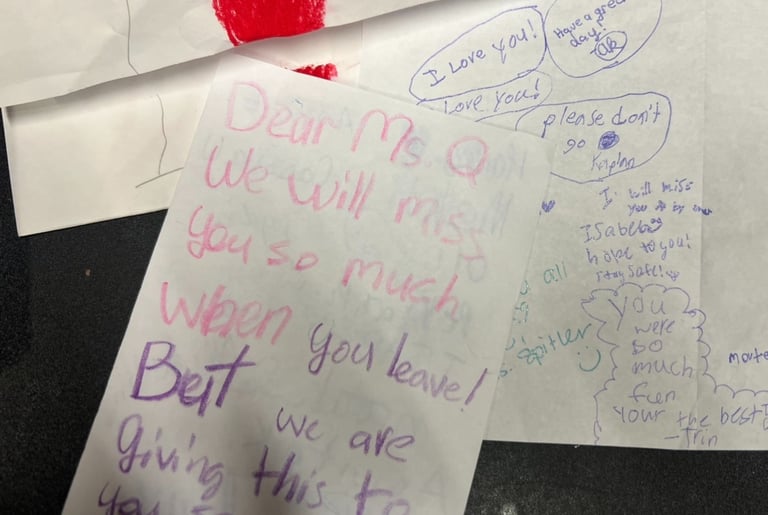 Dear Ms Q
We will miss
you so much
when you leave!
But we are
giving this to
I Love you!
Have a great
day!
Love you!
please don't
go
Kaplan
I will miss
you
hope to you!
stay safe!
all
You
were
so
much
fun
Your the best!
-Trin